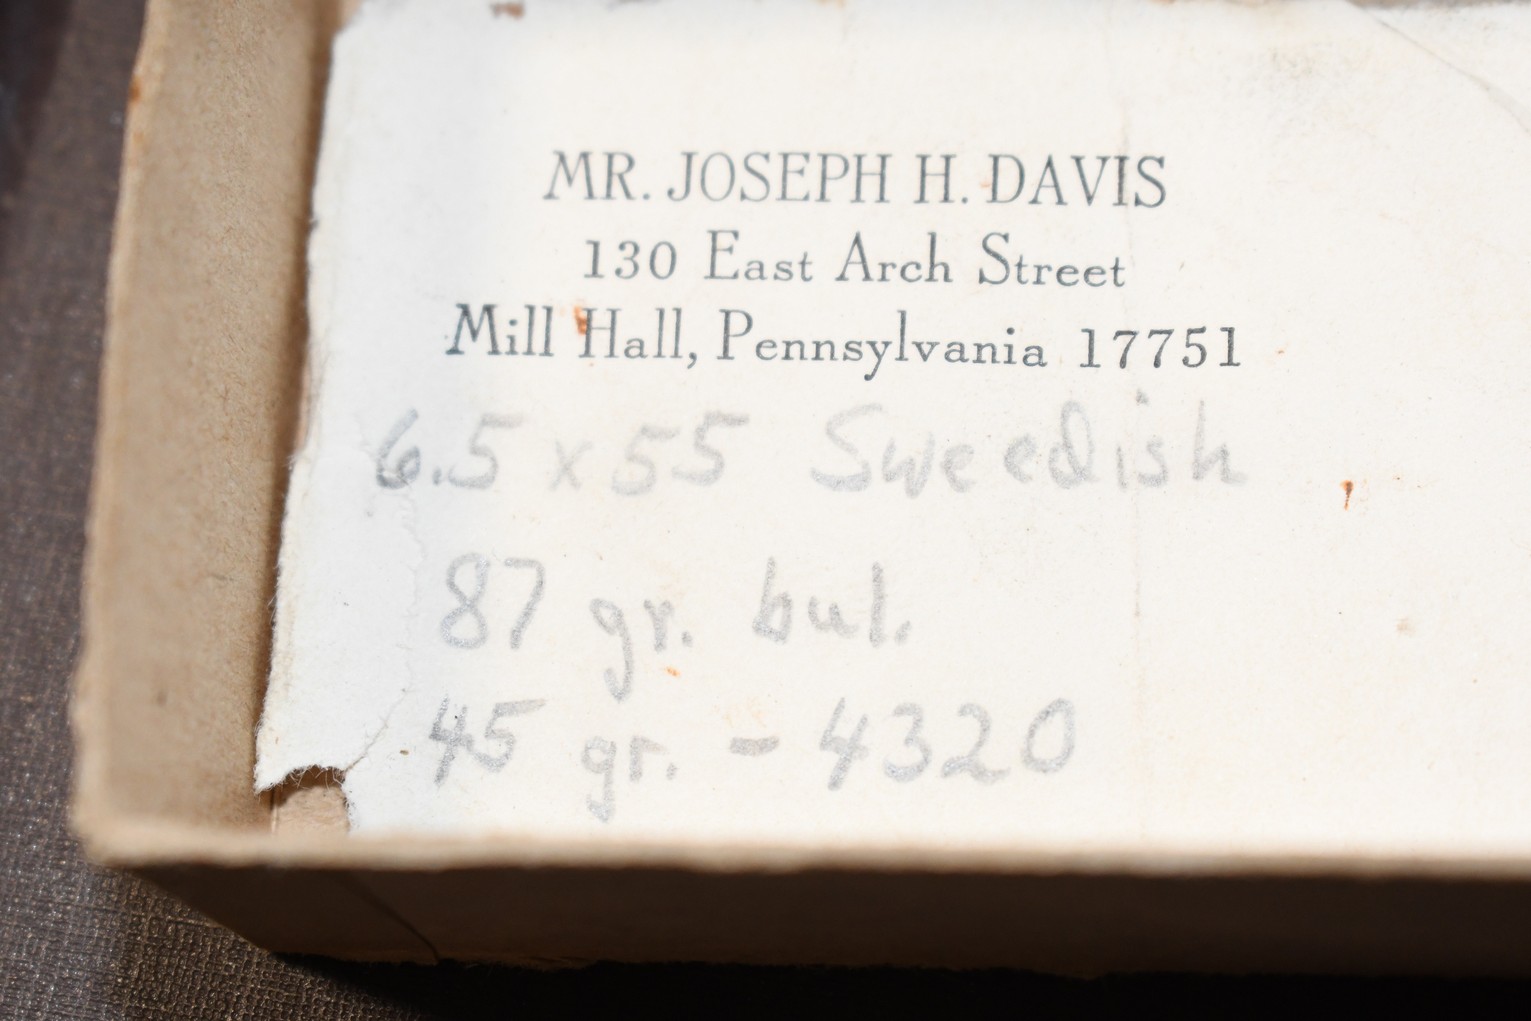 MR. JOSEPH H. DAVIS
130 East Arch Street
Mill Hall, Pennsylvania 17751
6.5 x 55 Swedish
87 gr. bul.
45 gr. - 4320